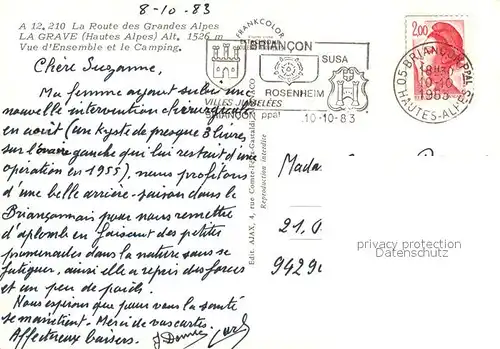 8-10.83
A 12.210 La Route des Grandes Alpes
LA GRAVE (Hautes Alpes) Alt. 1526 m
Vue d'Ensemble et le Camping.
Chère Suzanne,
Ma femme ayant subi une
nouvelle intervention chirurgicale
en août (un kyste de presque 3 livres
sur l'ovaire gauche qui lui restait d'une
opération en 1955), nous profitons
d'une belle arrière-saison dans le
Briançonnais pour nous remettre
d'aplomb en faisant des petites
promenades dans la nature sans se
fatiguer, ainsi elle a repris des forces
et un peu de poids.
Nous espérons que pour vous la santé
se maintient. Merci de vos cartes.
Affectueux baisers.
FRANKCOLOR
Edit. AJAX, 4, rue Comte-Félix-Gastaldi
Reproduction interdite
BRIANÇON
SUSA
ROSENHEIM
VILLES JUMELÉES
BRIANÇON ppal
10-10-83
2,00
05 BRIANÇON PPAL
18H
10-10
1983
HAUTES-ALPES
Mada
21.
9429
privacy protection
Datenschutz